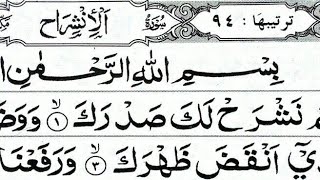 ترتيبها : ٩٤ سُورَةُ اَلْاِنْشِرَاح
بِسْمِ اللهِ الرَّحْمٰنِ
نَشْرَحْ لَكَ صَدْرَكَ ۙ﴿١﴾
اَنْقَضَ ظَهْرَكَ ۙ﴿٣﴾ وَرَفَعْنَا